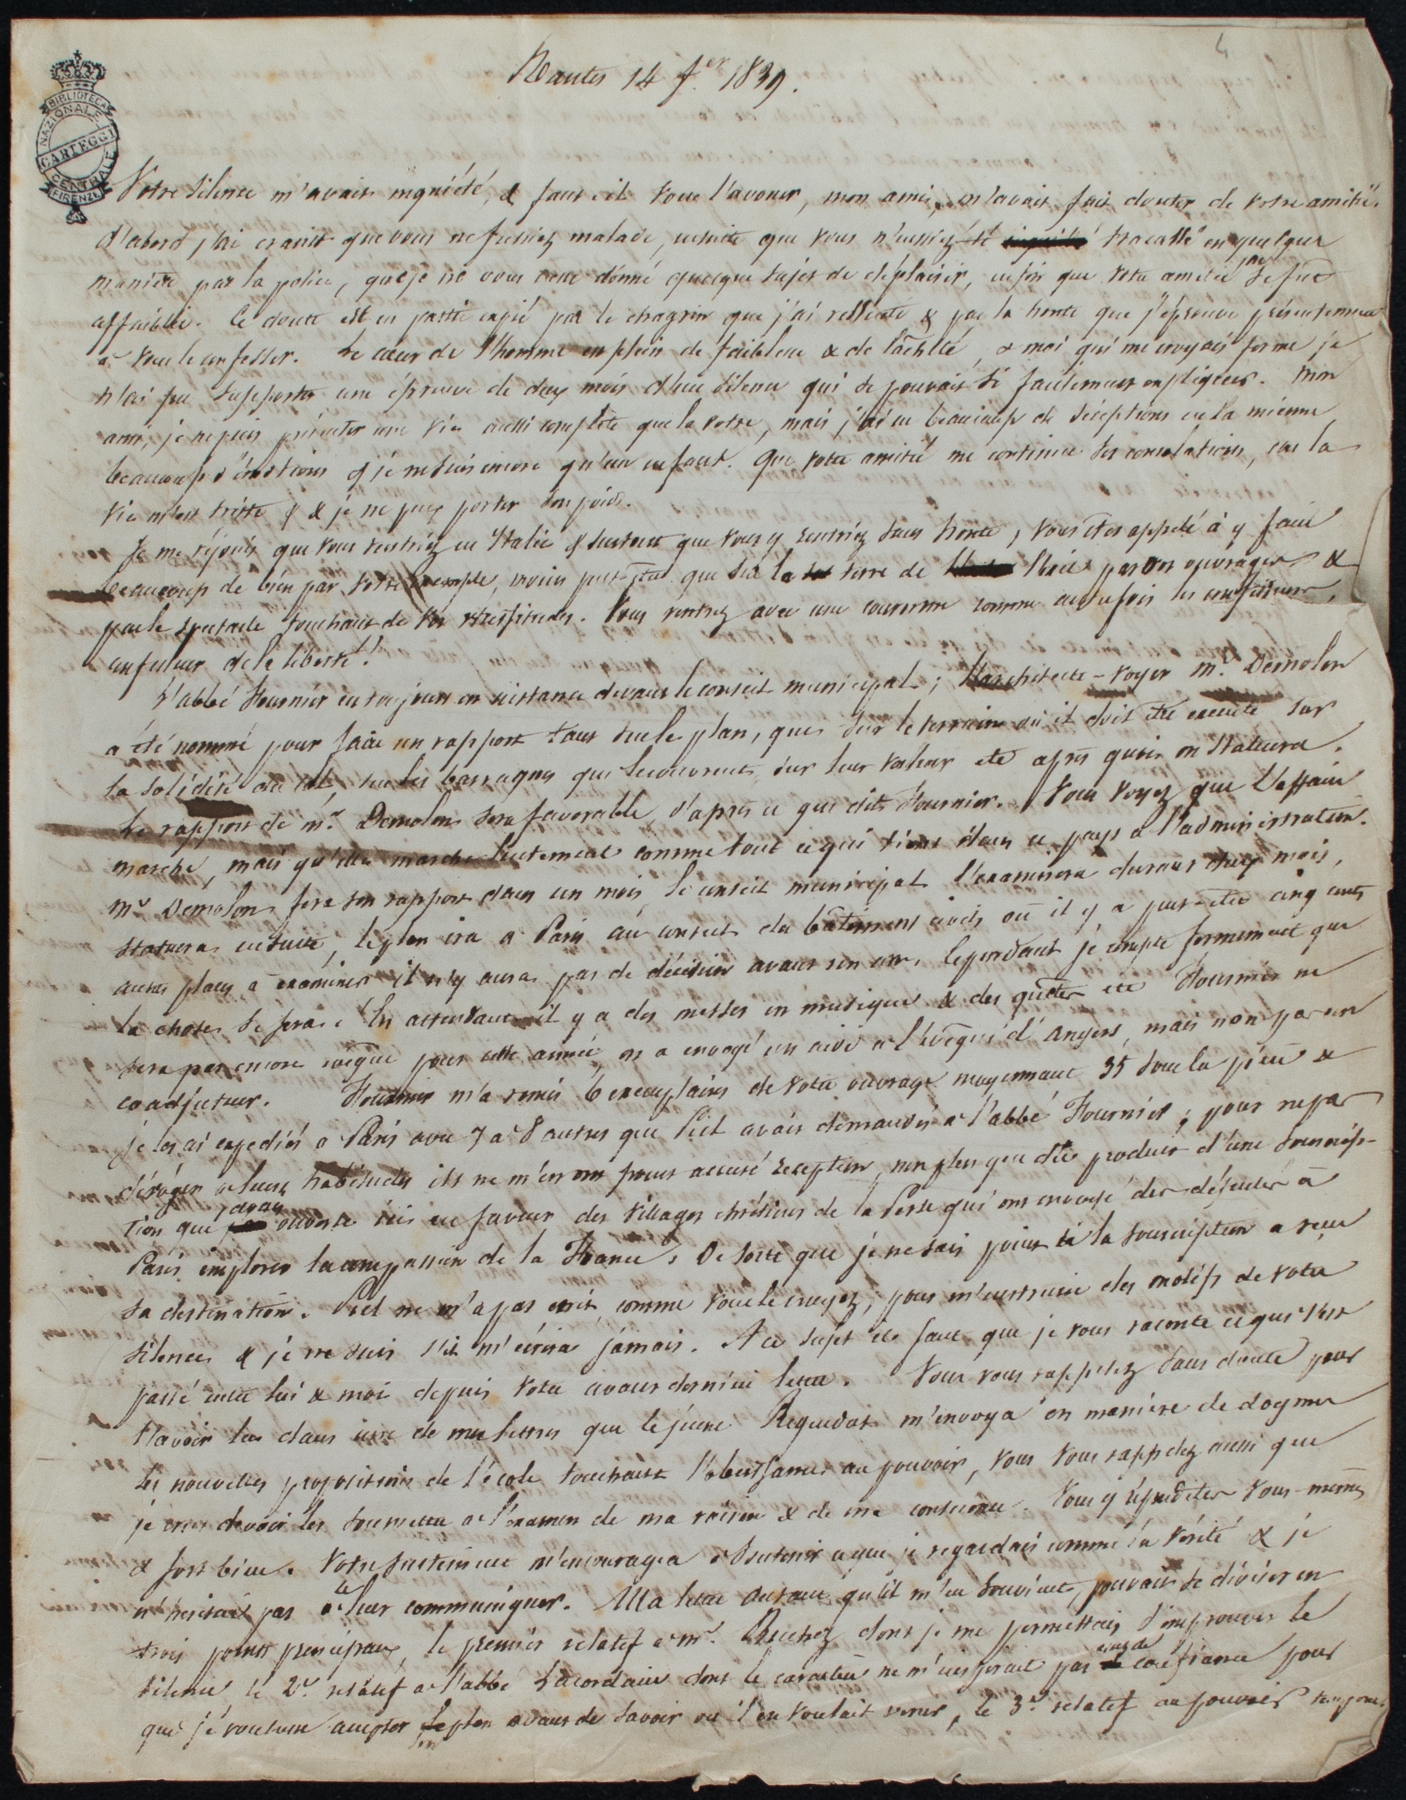 4
Nantes 14 f.er 1839.
BIBLIOTECA
NAZIONALE
CARTEGGI
CENTRALE
FIRENZE
Votre silence m'avait inquiété, & faut-il vous l'avouer, mon ami, m'avait fait douter de votre amitié.
d'abord j'ai craint que vous ne fussiez malade, ensuite que vous n'eussiez été tracassé en quelque
manière par la police, que je ne vous eusse donné quelque sujet de déplaisir, enfin que votre amitié ne se fut
affaiblie. Ce doute est en partie expié par le chagrin que j'ai ressenti & par la honte que j'éprouve présentement
à vous le confesser. Le cœur de l'homme est plein de faiblesse & de lâcheté, & moi qui me croyais ferme je
n'ai pu supporter une épreuve de deux mois d'un silence qui se pouvait si facilement expliquer. Mon
ami, je ne puis présenter une vie aussi complète que la votre, mais j'ai eu beaucoup de déceptions en la mienne
beaucoup d'émotions & je ne suis encore qu'un enfant. Que votre amitié me continue ses consolations, car la
vie m'est triste & je ne puis porter son poids.
Je me réjouis que vous rentriez en Italie & surtout que vous y rentriez sans honte, vous êtes appelé à y faire
beaucoup de bien par votre exemple, moins peut-être que sur la terre de par vos ouvrages &
par le spectacle touchant de vos vicissitudes. Vous rentrez avec une couronne comme autrefois les confesseurs,
confesseur de la liberté!
L'abbé Fournier est toujours en instance devant le conseil municipal; l'architecte-voyer Mr. Demolon
a été nommé pour faire un rapport tant sur le plan, que sur le terrain où il doit être exécuté sur
la solidité du sol, sur les baraques qui le couvrent, sur leur valeur etc après quoi on statuera.
Le rapport de Mr. Demolon sera favorable, d'après ce que dit Fournier. Vous voyez que l'affaire
marche, mais qu'elle marche lentement comme tout ce qui tient dans ce pays à l'administration.
Mr Demolon fera son rapport dans un mois, le conseil municipal l'examinera durant deux mois,
statuera ensuite, le plan ira à Paris au conseil des bâtiments civils où il y a peut-être cinq cents
autres plans à examiner il n'y aura pas de décision avant un an. Cependant je compte fermement que
la chose se fera. En attendant il y a des messes en musique & des quêtes etc Fournier ne
sera pas encore évêque pour cette année on a envoyé un aide à l'évêque d'Angers, mais non pas un
coadjuteur. Fournier m'a remis 6 exemplaires de votre ouvrage moyennant 35 sous la pièce &
je les ai expédiés à Paris avec 7 à 8 autres que Piel avait demandés à l'abbé Fournier; pour ne pas
déroger à leurs habitudes ils ne m'en ont point accusé réception, non plus que du produit d'une souscrip-
tion que j'avais ouverte ici en faveur des villages chrétiens de la Perse qui ont envoyé des députés à
Paris implorer la compassion de la France. De sorte que je ne sais point si la souscription a reçu
sa destination. Piel ne m'a pas écrit, comme vous le croyez, pour m'instruire des motifs de votre
silence & je ne sais s'il m'écrira jamais. A ce sujet il faut que je vous raconte ce qui s'est
passé entre lui & moi depuis votre avant dernière lettre. Vous vous rappelez sans doute pour
l'avoir lu dans une de mes lettres que le jeune Requedat m'envoya en manière de dogme
les nouvelles propositions de l'école touchant l'obéissance au pouvoir, vous vous rappelez aussi que
je crus devoir les soumettre à l'examen de ma raison & de ma conscience. Vous y répondites vous-même
& fort bien. Votre sentiment m'encouragea à soutenir ce que je regardais comme la vérité & je
n'hésitai pas à le leur communiquer. Ma lettre autant qu'il m'en souvient, pouvait se diviser en
trois points principaux, le premier relatif à Mr. Buchez dont je me permettais d'improuver le
silence, le 2e. relatif à l'abbé Lacordaire dont le caractère ne m'inspirait pas assez de confiance pour
que je voulusse accepter son plan avant de savoir où l'on voulait venir, le 3e. relatif au pouvoir temporel